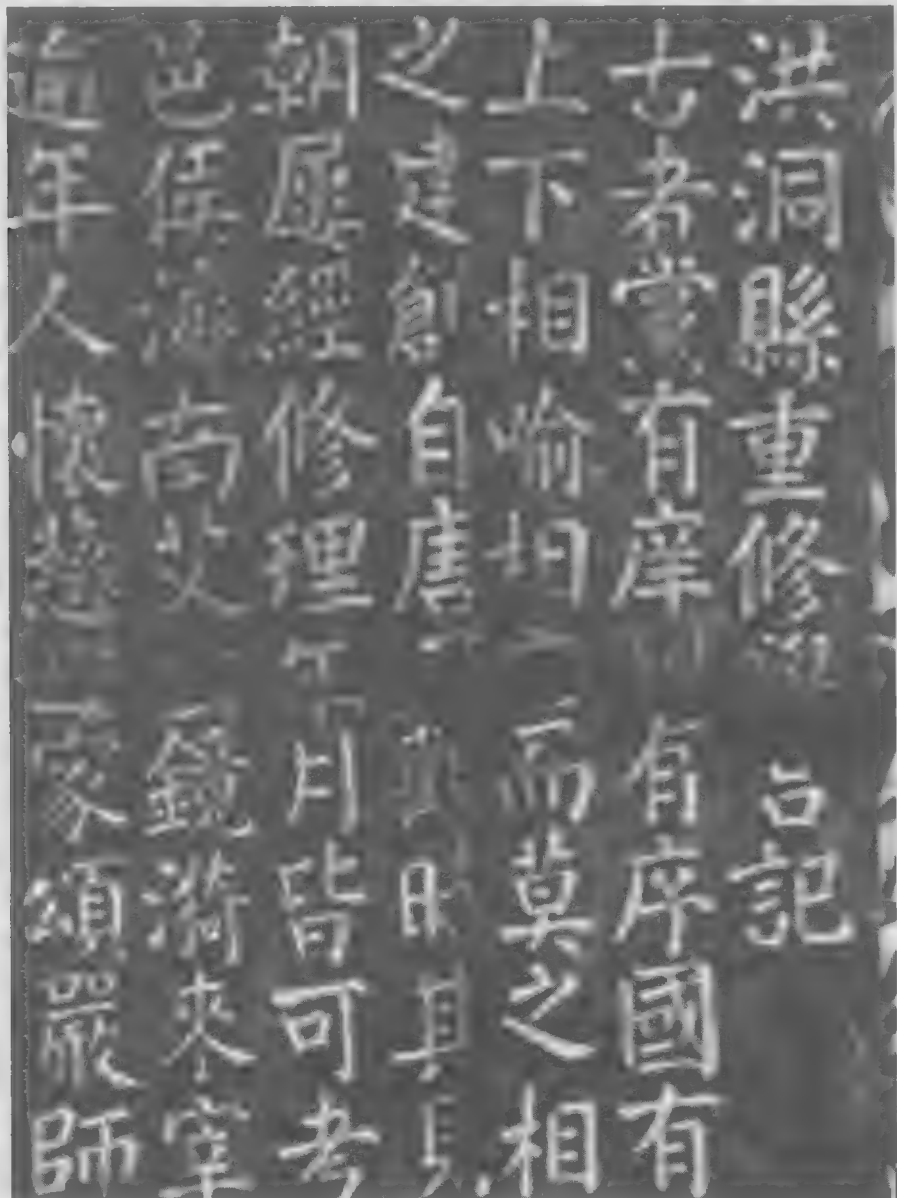 洪洞縣重修台記
古者黨有庠有序國有
上下相喻均而莫之相
之建創自唐時其
朝歷經修理月皆可考
邑侯海南艾鏡漪來宰
年人懷慈家頌嚴師